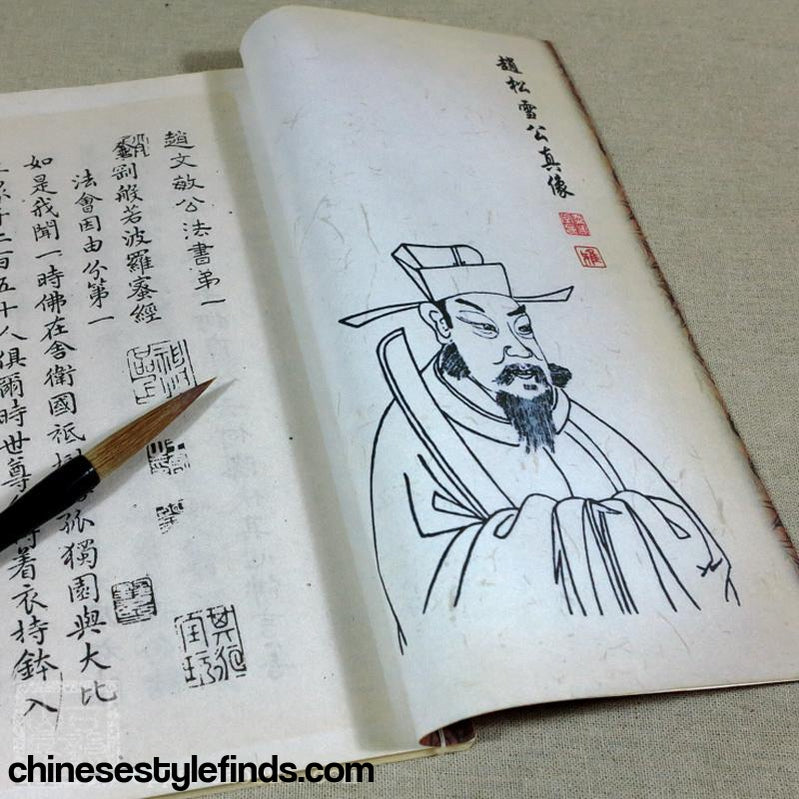 趙松雪公真像
趙文敏公法書第一
金剛般若波羅蜜經
法會因由分第一
如是我聞一時佛在舍衛國祇樹 孤獨園與大比
千二百五十人俱爾時世尊 着衣持鉢入
chinesestylefinds.com